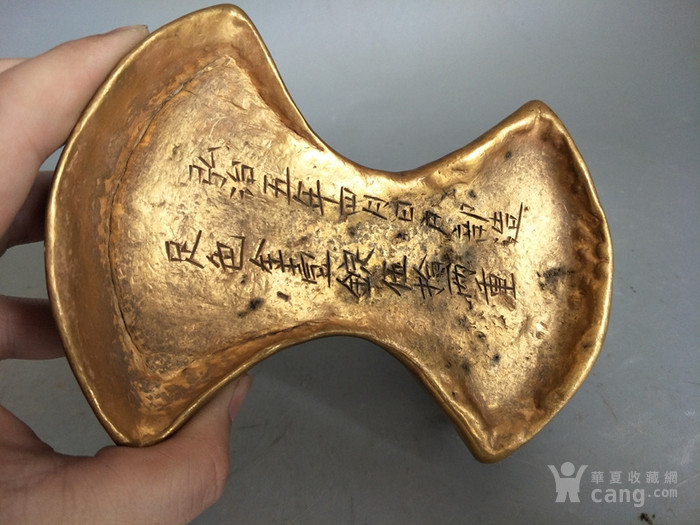 弘治五年四月日
足色金壹錠伍拾兩重
華夏收藏網
cang.com